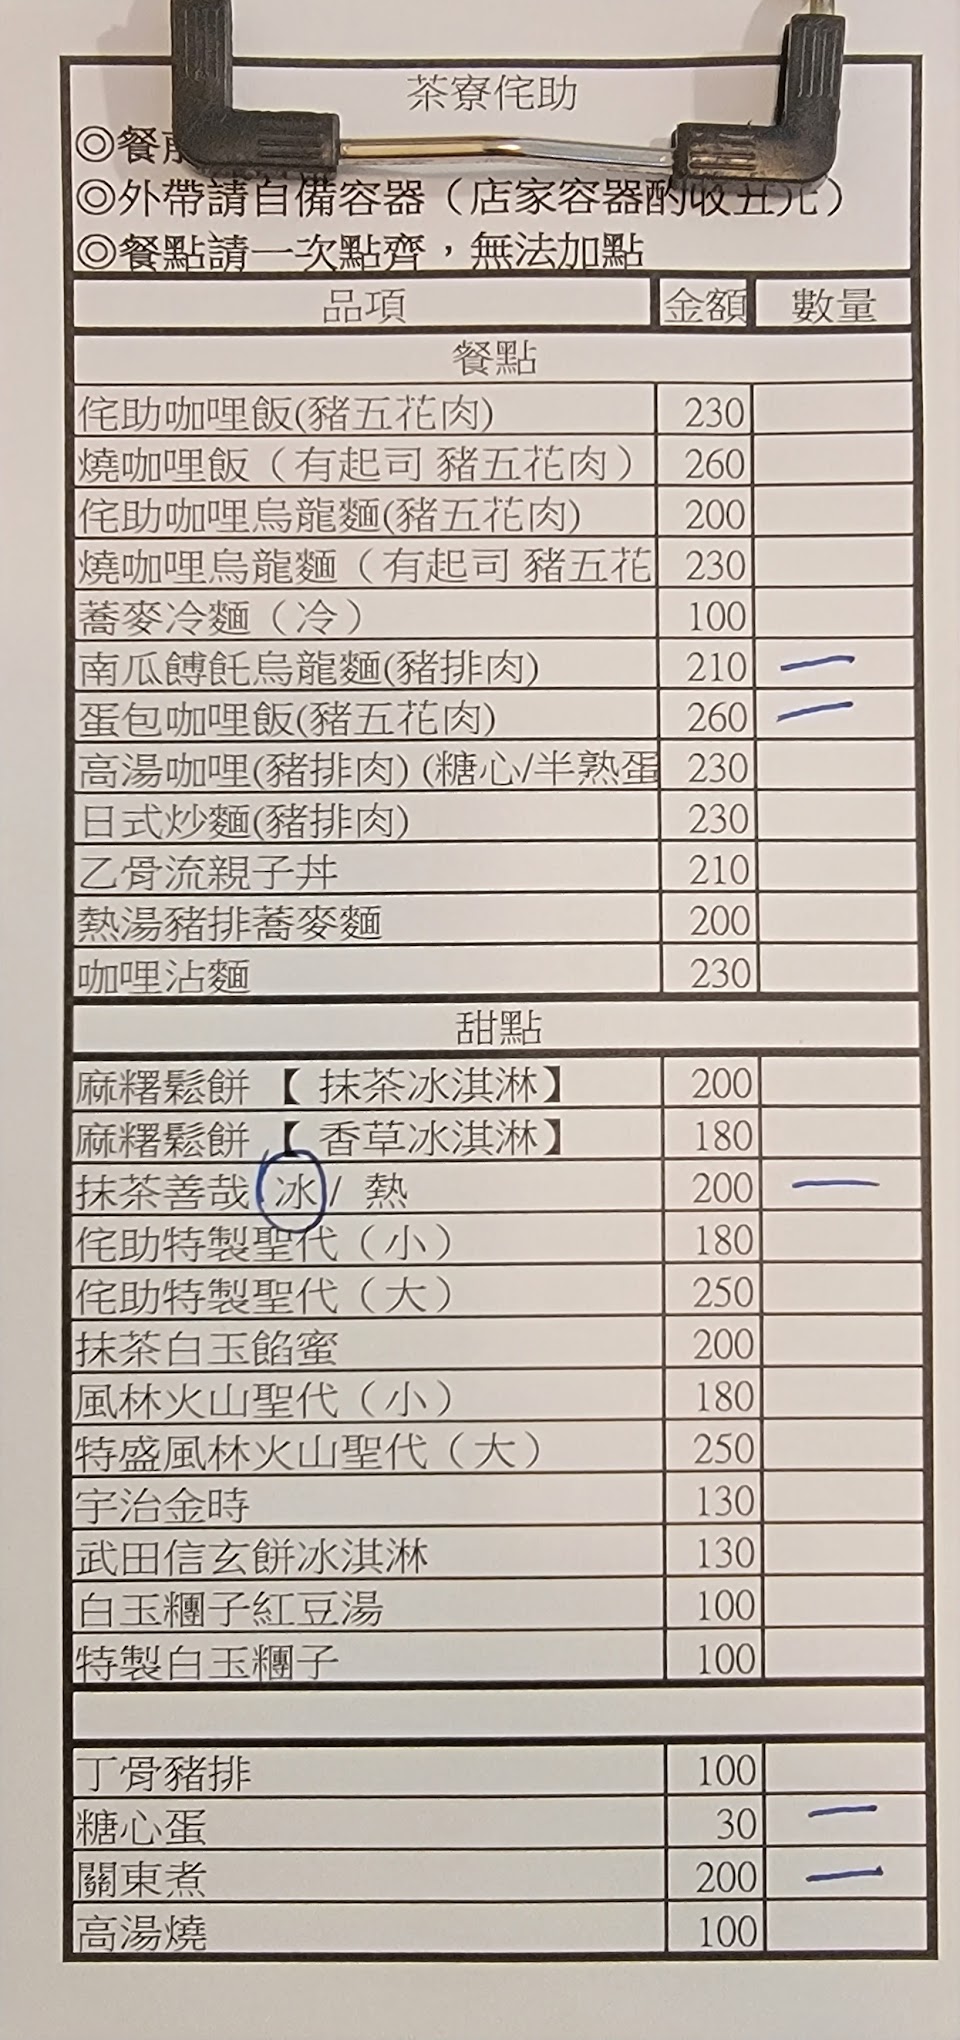 茶寮侘助
◎餐
◎外帶請自備容器（店家容器酌收五元）
◎餐點請一次點齊，無法加點
品項 金額 數量
餐點
侘助咖哩飯(豬五花肉) 230
燒咖哩飯（有起司 豬五花肉） 260
侘助咖哩烏龍麵(豬五花肉) 200
燒咖哩烏龍麵（有起司 豬五花 230
蕎麥冷麵（冷） 100
南瓜餺飥烏龍麵(豬排肉) 210 一
蛋包咖哩飯(豬五花肉) 260 一
高湯咖哩(豬排肉) (糖心/半熟蛋 230
日式炒麵(豬排肉) 230
乙骨流親子丼 210
熱湯豬排蕎麥麵 200
咖哩沾麵 230
甜點
麻糬鬆餅 【 抹茶冰淇淋】 200
麻糬鬆餅 【 香草冰淇淋】 180
抹茶善哉 冰 / 熱 200 一
侘助特製聖代（小） 180
侘助特製聖代（大） 250
抹茶白玉餡蜜 200
風林火山聖代（小） 180
特盛風林火山聖代（大） 250
宇治金時 130
武田信玄餅冰淇淋 130
白玉糰子紅豆湯 100
特製白玉糰子 100
丁骨豬排 100
糖心蛋 30 一
關東煮 200 一
高湯燒 100